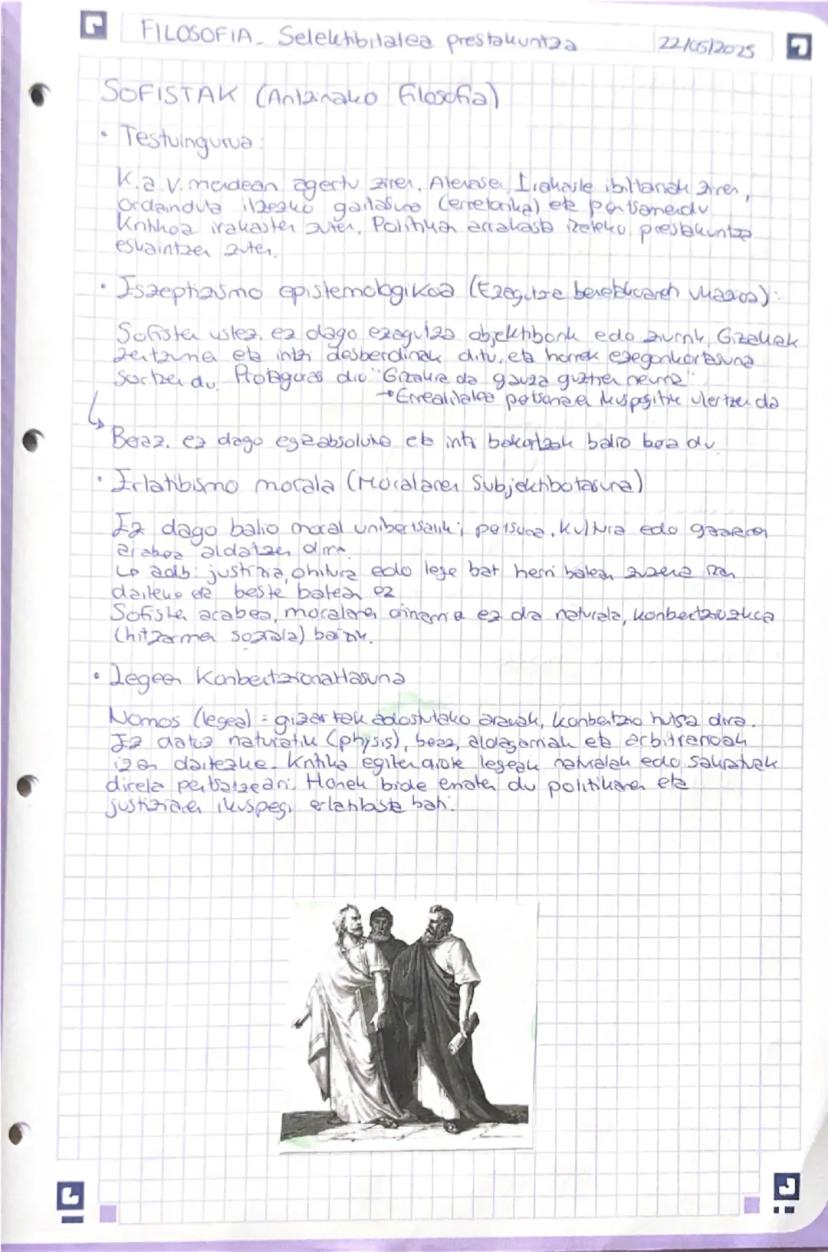 FILOSOFIA - Selektibitatea prestakuntza 22/05/2025
SOFISTAK (Antzinako Filosofia)
• Testuingurua:
K.a V. mendean agertu ziren, Atenasen. Irakasle ibiltariak ziren,
ordainduta hizteko gaitasuna (erretorika) eta pentsamendu
kritikoa irakasten zuten. Politikan arrakasta izateko prestakuntza
eskaintzen zuten.
• Eszeptizismo epistemologikoa (Ezagutza benetakoaren ukazioa):
Sofisten ustez, ez dago ezagutza objektiborik edo ziurrik. Gizakiak
zentzumena eta iritzi desberdinak ditu, eta horrek ezegonkortasuna
sortzen du. Protagoras dio "Gizakia da gauza guztien neurria"
→ Errealitatea pertsonaren ikuspegitik ulertzen da
↳ Beraz, ez dago egia absoluturik eta iritzi bakoitzak balio bera du.
• Erlatibismo morala (Moralaren Subjektibotasuna)
Ez dago balio moral unibertsalik; pertsona, kultura edo garaiaren
arabera aldatzen dira.
↳ adb: justizia, ohitura edo lege bat herri batean zuzena izan
daiteke eta beste batean ez
Sofisten arabera, moralaren oinarria ez da naturala, konbentziozkoa
(hitzarmen soziala) baizik.
• Legeen Konbentzionaltasuna
Nomos (legea) = gizarteak adostutako arauak, konbentzio hutsa dira.
Ez datoz naturatik (physis), beraz, aldagarriak eta arbitrarioak
izan daitezke. Kritika egiten diote legeak naturalak edo sakratuak
direla pentsatzeari. Honek bide ematen du politikaren eta
justiziaren ikuspegi erlatibista bati.